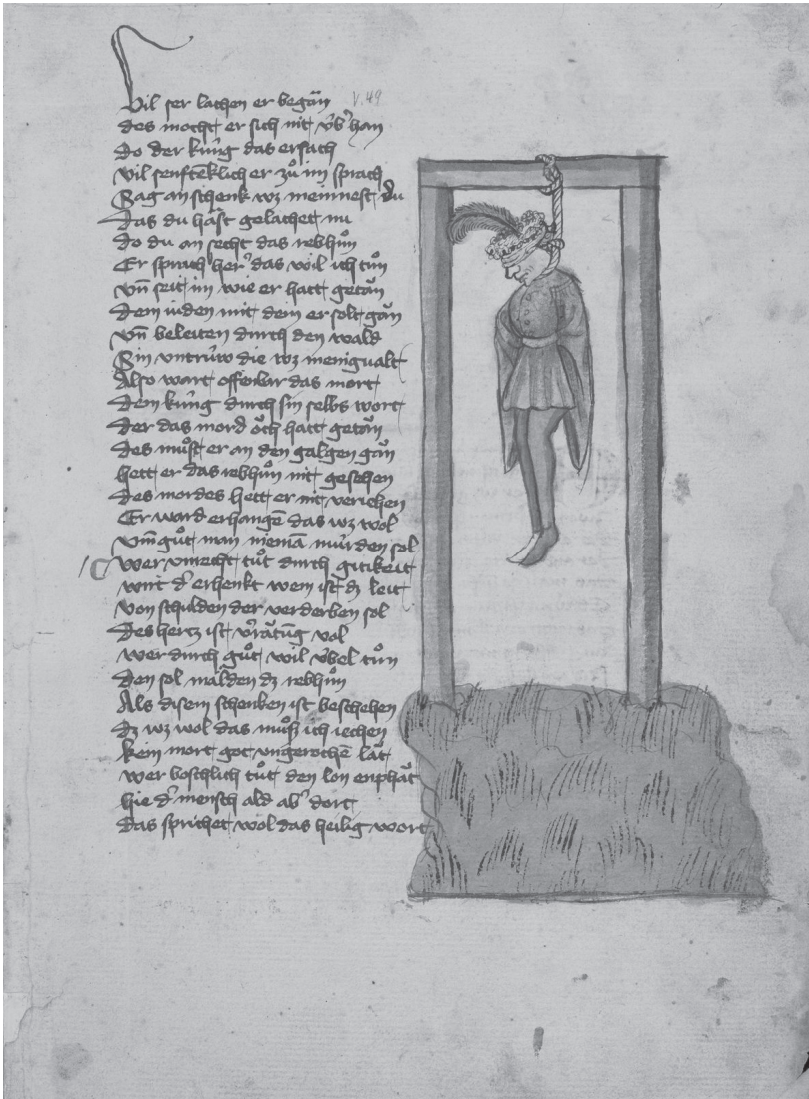 Vil ser lachen er began v. 49
des mocht er sich nit v̓b̓ han
Do der kúng das ersach
Vil senfteklich er zů im sprach
Sag an schenk wz meinnest du
Das du hast gelachet nu
do du an secht das rebhůn
Er sprach her̓ das wil ich tůn
Vn̄ seit im wie er hatt getan
Dem iuden mit dem er solt gan
Vn̄ beleiten durch den wald
Sin vntrúw die wz menigualt
Also wart offenbar das mort
Dem kúng durch sin selbs wort
Der das mord och hatt getan
Des můst er an den galgen gan
Hett er das rebhůn nit gesehen
Des mordes hett er nit veriehen
Er ward erhangē das wz wol
Vm̄ gůt man niemā múrden sol
Wer vnrecht tůt durch gitikeit
wirt d̓ erhenkt wem ist dz leit
Von schulden der verderben sol
Des hertz ist v̓rätūg vol
Wer durch gůt wil v̓bel tůn
Den sol mälden dz rebhůn
Als disem schenken ist beschehen
Dz wz wol das můß ich iechen
Kein mort got vngerochē lat
wer boschlich tůt den lon enphat
hie d̓ mensch ald ab̓ dort
Das sprichet wol das heilig wort